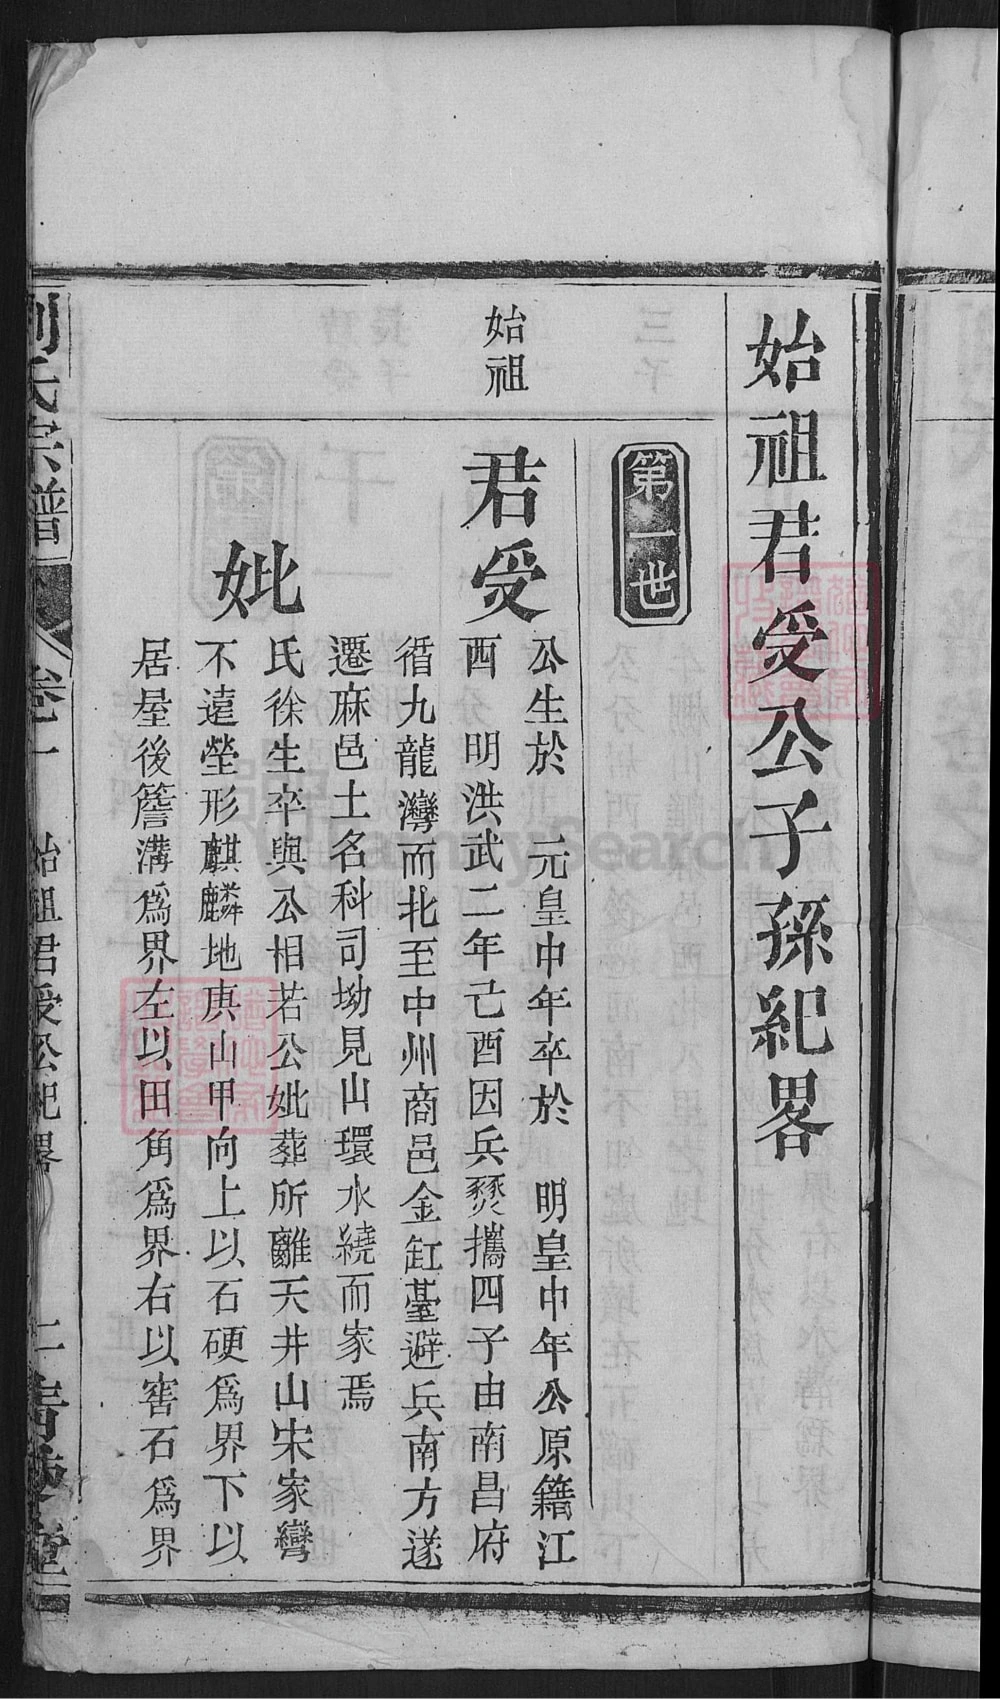 始祖君受公子孫紀畧
第一世
始祖
君受
公生於 元皇中年卒於 明皇中年公原籍江
西 明洪武二年己酉因兵燹攜四子由南昌府
循九龍灣而北至中州商邑金缸臺避兵南方遂
遷麻邑土名科司坳見山環水繞而家焉
妣
氏徐生卒與公相若公妣葬所離天井山宋家彎
不遠塋形麒麟地庚山甲向上以石硬為界下以
居屋後簷溝為界左以田角為界右以窖石為界
劉氏宗譜
卷一 始祖君受公紀畧
二
堂
FamilySearch